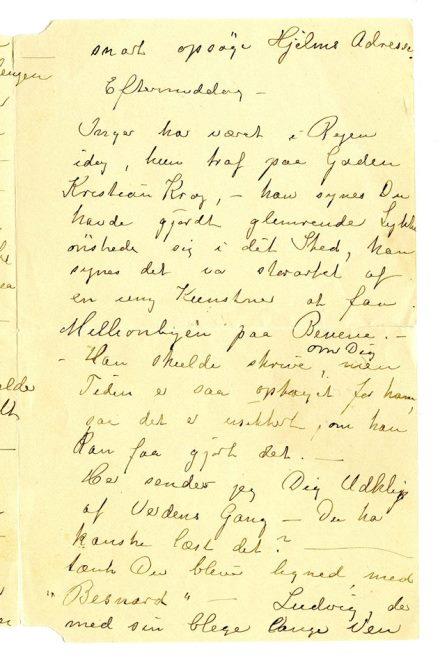 snart opsøge Hjelms Adresse.
Eftermiddag –
Inger har været i Byen
idag, hun traf paa Gaden
Kristian Krog, – han synes Du
havde gjordt glimrende Lykke
ønskede sig i dit Sted, han
synes det var storartet af
en ung Kunstner at faa
Millionbyen paa Benene. –
– Han skulde skrive om Dig, men
Tiden er saa optaget for ham,
saa det er usikkert, om han
kan faa gjort det. –
Her sender jeg Dig Udklip
af Verdens Gang – Du har
kanske læst det? –
tænk Du blev lignet med
"Besnard" – Ludvig, der
med sin blege lange Ven